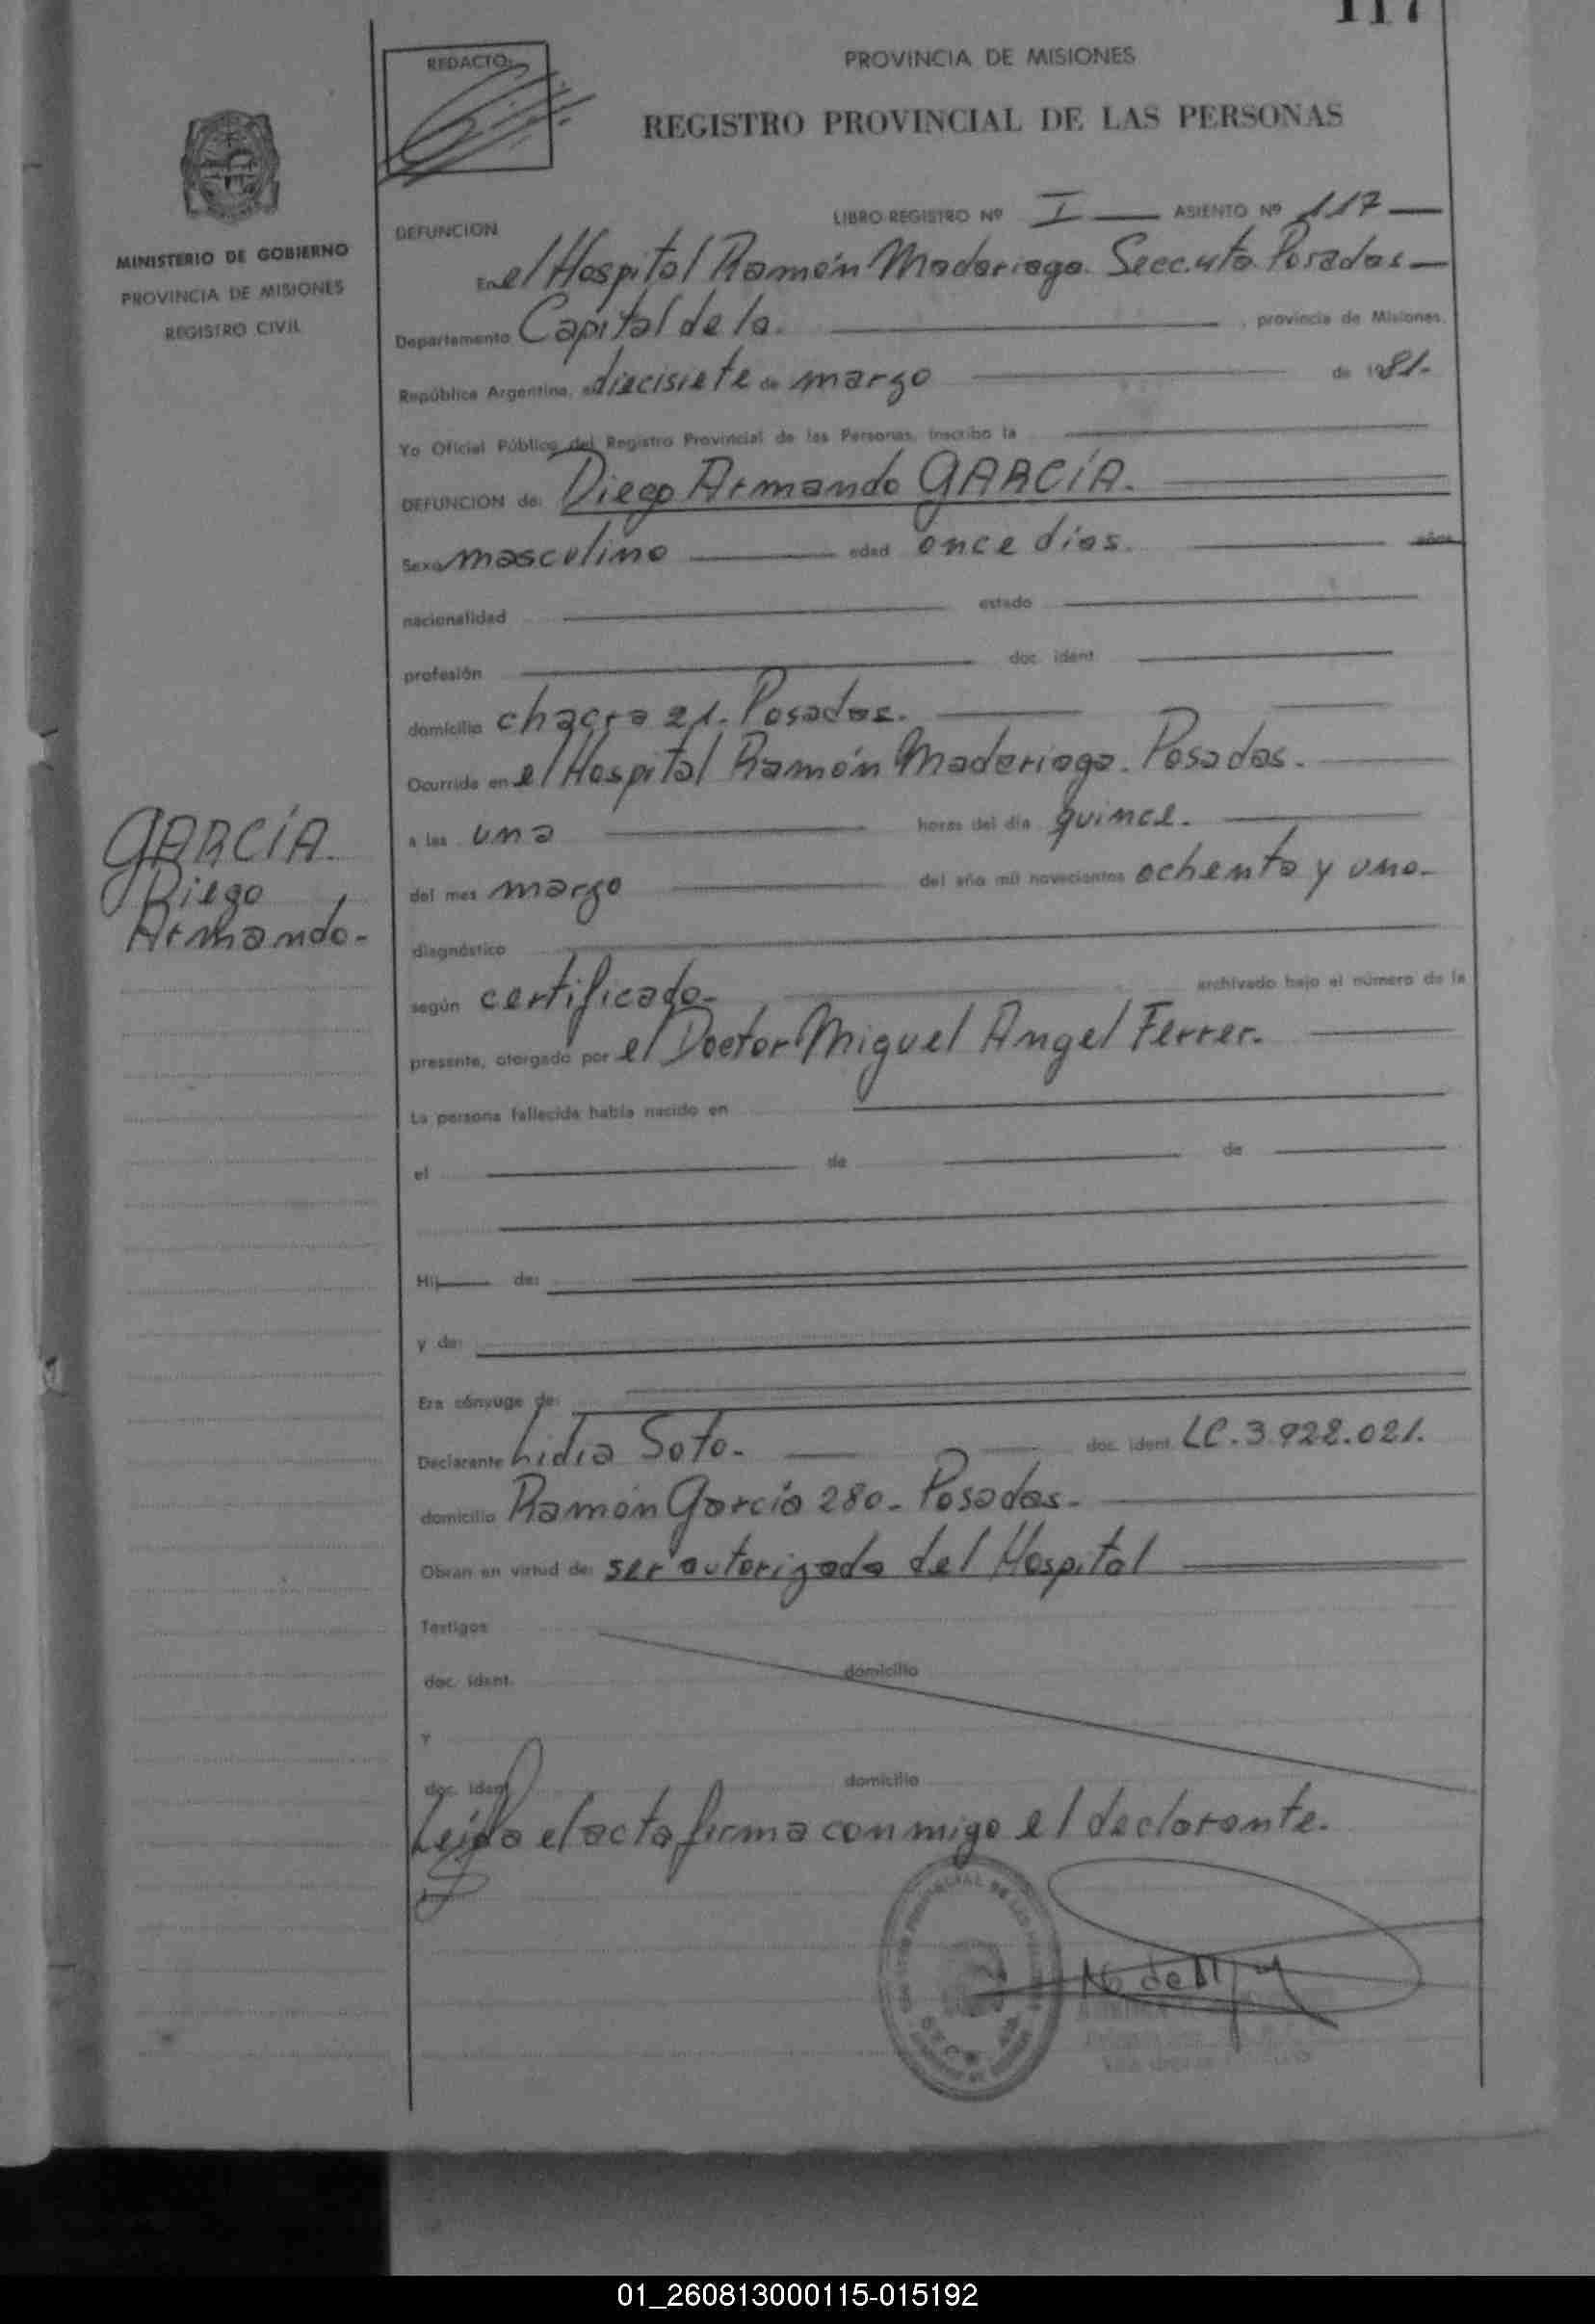 117
REDACTO:
PROVINCIA DE MISIONES
REGISTRO PROVINCIAL DE LAS PERSONAS
MINISTERIO DE GOBIERNO
PROVINCIA DE MISIONES
REGISTRO CIVIL
LIBRO-REGISTRO Nº I ASIENTO Nº 117
DEFUNCION
En el Hospital Ramón Madariaga. Secc. 4ta. Posadas
Departamento Capital de la. provincia de Misiones.
República Argentina, a diecisiete de marzo de 1981.
Yo Oficial Público del Registro Provincial de las Personas, inscribo la
DEFUNCION de: Diego Armando GARCÍA.
Sexo masculino edad once días. años
nacionalidad estado
profesión doc. ident.
domicilio chacra 21. Posadas.
Ocurrida en el Hospital Ramón Madariaga. Posadas.
a las una horas del día quince.
del mes marzo del año mil novecientos ochenta y uno.
GARCÍA.
Diego
Armando-
diagnóstico
según certificado- archivado bajo el número de la
presente, otorgado por el Doctor Miguel Angel Ferrer.
La persona fallecida había nacido en
el de de
Hij de:
y de:
Era cónyuge de:
Declarante Lidia Soto. doc. ident. LC. 3.922.021.
domicilio Ramón García 280. Posadas.
Obran en virtud de: ser autorizada del Hospital
Testigos
doc. ident. domicilio
Y
doc. ident. domicilio
Leída el acta firma conmigo el declarante.
01_260813000115-015192